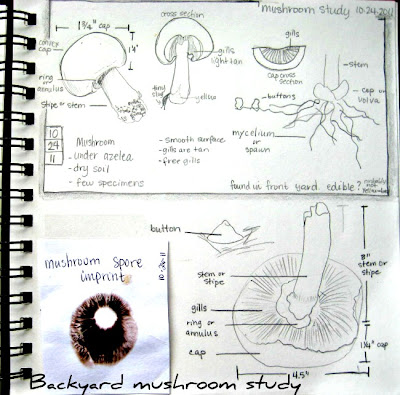 mushroom study 10-24-2011
1 3/4" cap
cross section
convex
cap
1 1/4"
gills
light tan
gills
cap cross
section
ring or
annulus
stipe or stem
tiny stub
yellow
buttons
stem
cup or
volva
mycelium
or
spawn
10
24
11
Mushroom
- under azelea
- dry soil
- few specimens
- smooth surface
- gills are tan
- free gills
found in front yard. edible?
button
mushroom spore
imprint
10-24-11
stem or
stipe
gills
ring or
annulus
cap
8"
stem or
stipe
1 1/4" cap
4.5"
Backyard mushroom study